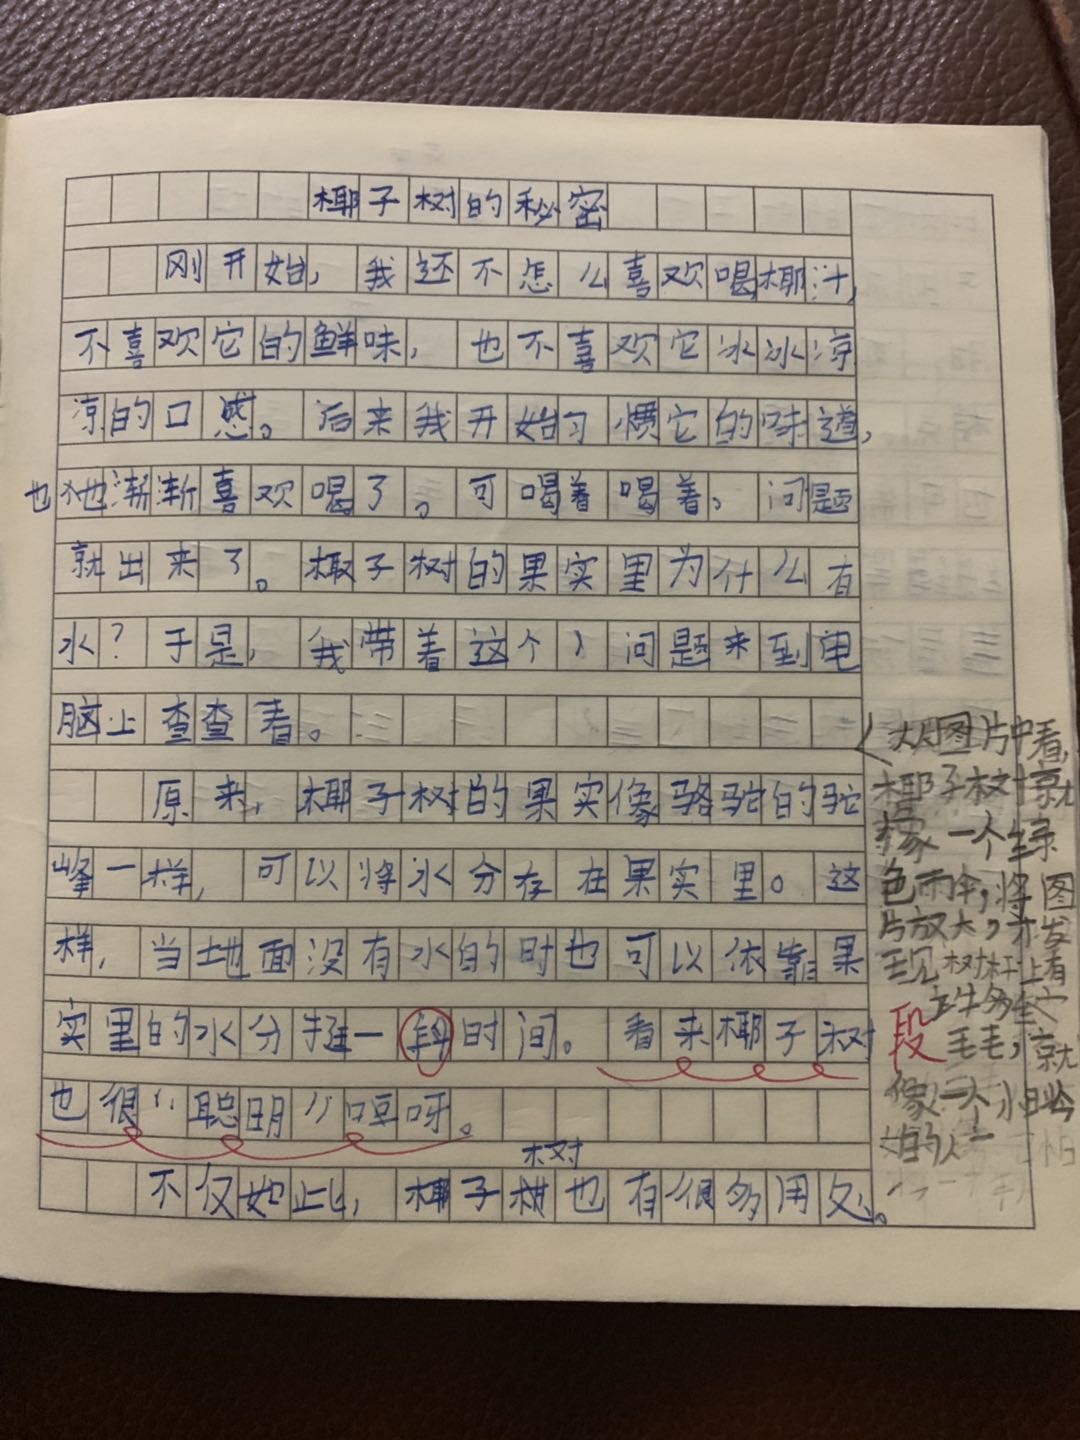 椰子树的秘密
刚开始，我还不怎么喜欢喝椰汁，
不喜欢它的鲜味，也不喜欢它冰冰凉
凉的口感。后来我开始习惯它的味道，
也渐渐喜欢喝了。可喝着喝着，问题
就出来了。椰子树的果实里为什么有
水？于是，我带着这个问题来到电
脑上查查看。
原来，椰子树的果实像骆驼的驼
峰一样，可以将水分存在果实里。这
样，当地面没有水的时也可以依靠果
实里的水分挺一 时间。看来椰子树
段
也很“聪明”哒呀。
树
不仅如此，椰子 也有很多用处。
从图片中看，
椰子树就
像一个绿
色雨伞，将图
片放大，才发
现树杆上有
许多 毛毛，就
像一个
的人